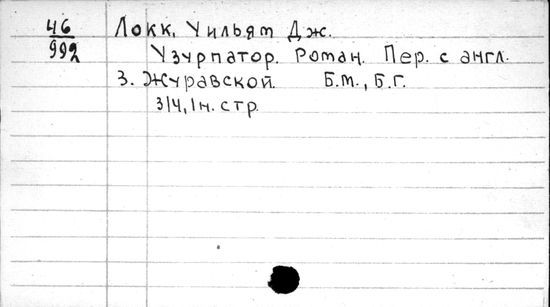 46 Локк, Уильям Дж.
992 Узурпатор. Роман. Пер. с англ.
З. Журавской. Б.м., Б.г.
314, 1 н. стр.